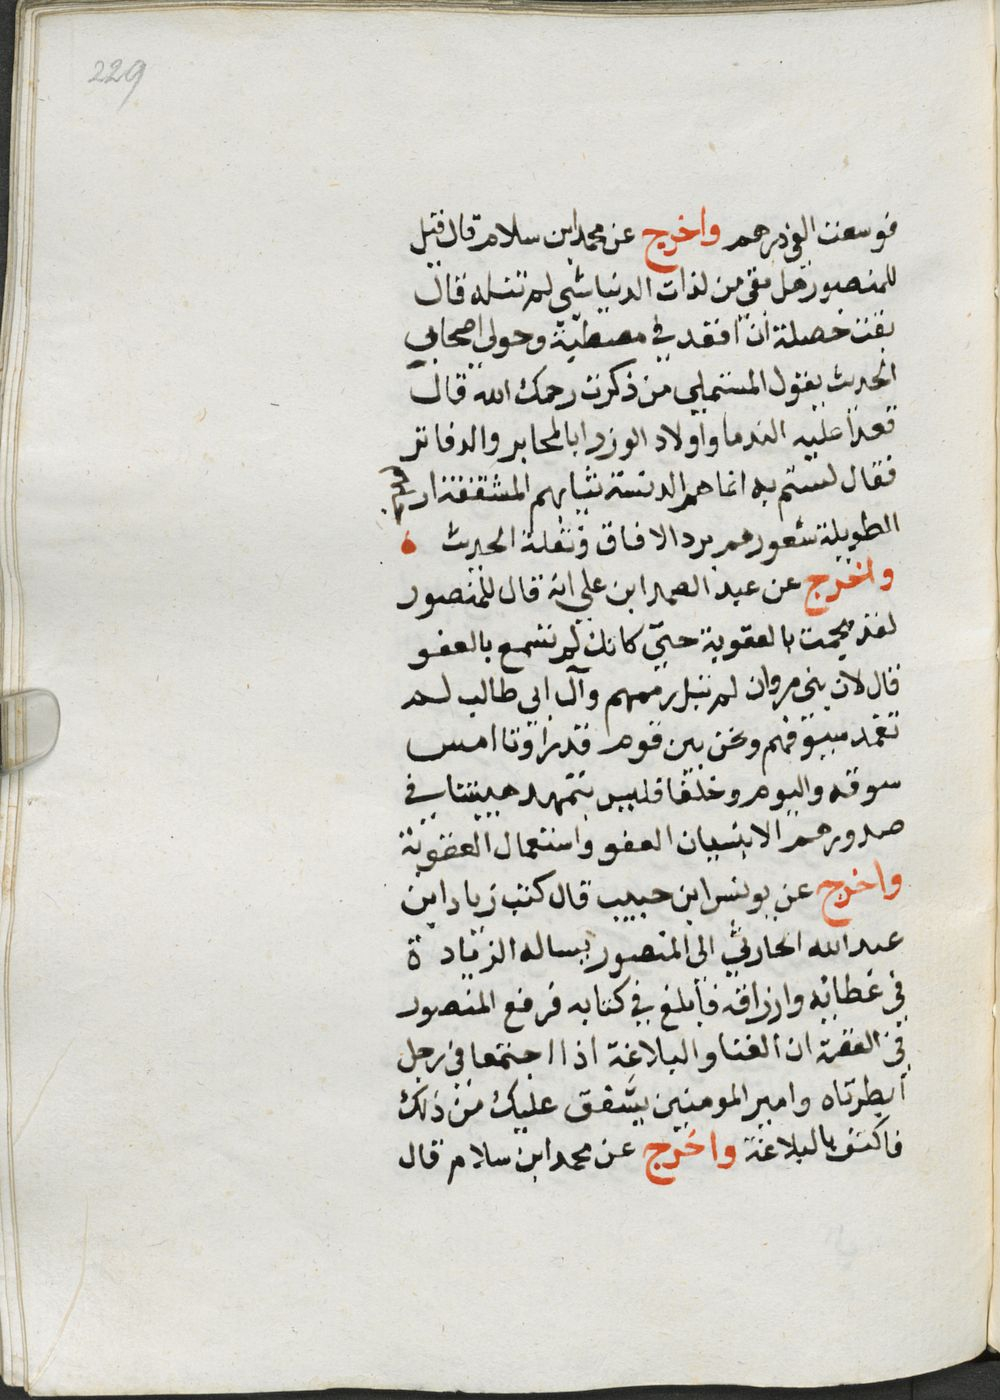 229
فوسعت الفي درهم واخرج عن محمد ابن سلام قال قيل
للمنصور هل بقي من لذات الدنيا شي لم تنله قال
بقت خصلة ان اقعد في مصطبة وحولي اصحابي
الحديث يقول المستملي من ذكرت رحمك الله قال
فغدا عليه الندما واولاد الوزرا بالمحابر والدفاتر
فقال لستم بهم انما هم الدنسة ثيابهم المشققة ارجلهم
الطويلة شعورهم برد الافاق ونقلة الحديث
واخرج عن عبد الصمد ابن علي انه قال للمنصور
لقد هجمت بالعقوبة حتى كانك لم تسمع بالعفو
قال لان بني مروان لم تبل رممهم وآل ابي طالب لم
تغمد سيوفهم ونحن بين قوم قد راونا امس
سوقه واليوم وخلفا فليس تتمهد هيبتنا في
صدورهم الا بنسيان العفو واستعمال العقوبة
واخرج عن يونس ابن حبيب قال كتب زياد ابن
عبد الله الحارثي الى المنصور يساله الزيادة
في عطائه وارزاقه فابلغ في كتابه فرفع المنصور
في القصة ان الغنا والبلاغة اذا اجتمعا في رجل
ابطرتاه وامير المومنين يشفق عليك من ذلك
فاكتف بالبلاغة واخرج عن محمد ابن سلام قال